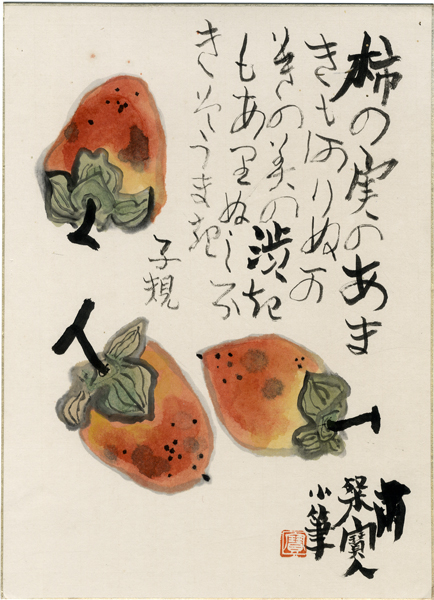 柿の実のあま
きもありぬか
きの美の渋き
もありぬしぶ
きそうまき
子規
寶人
小筆
寶